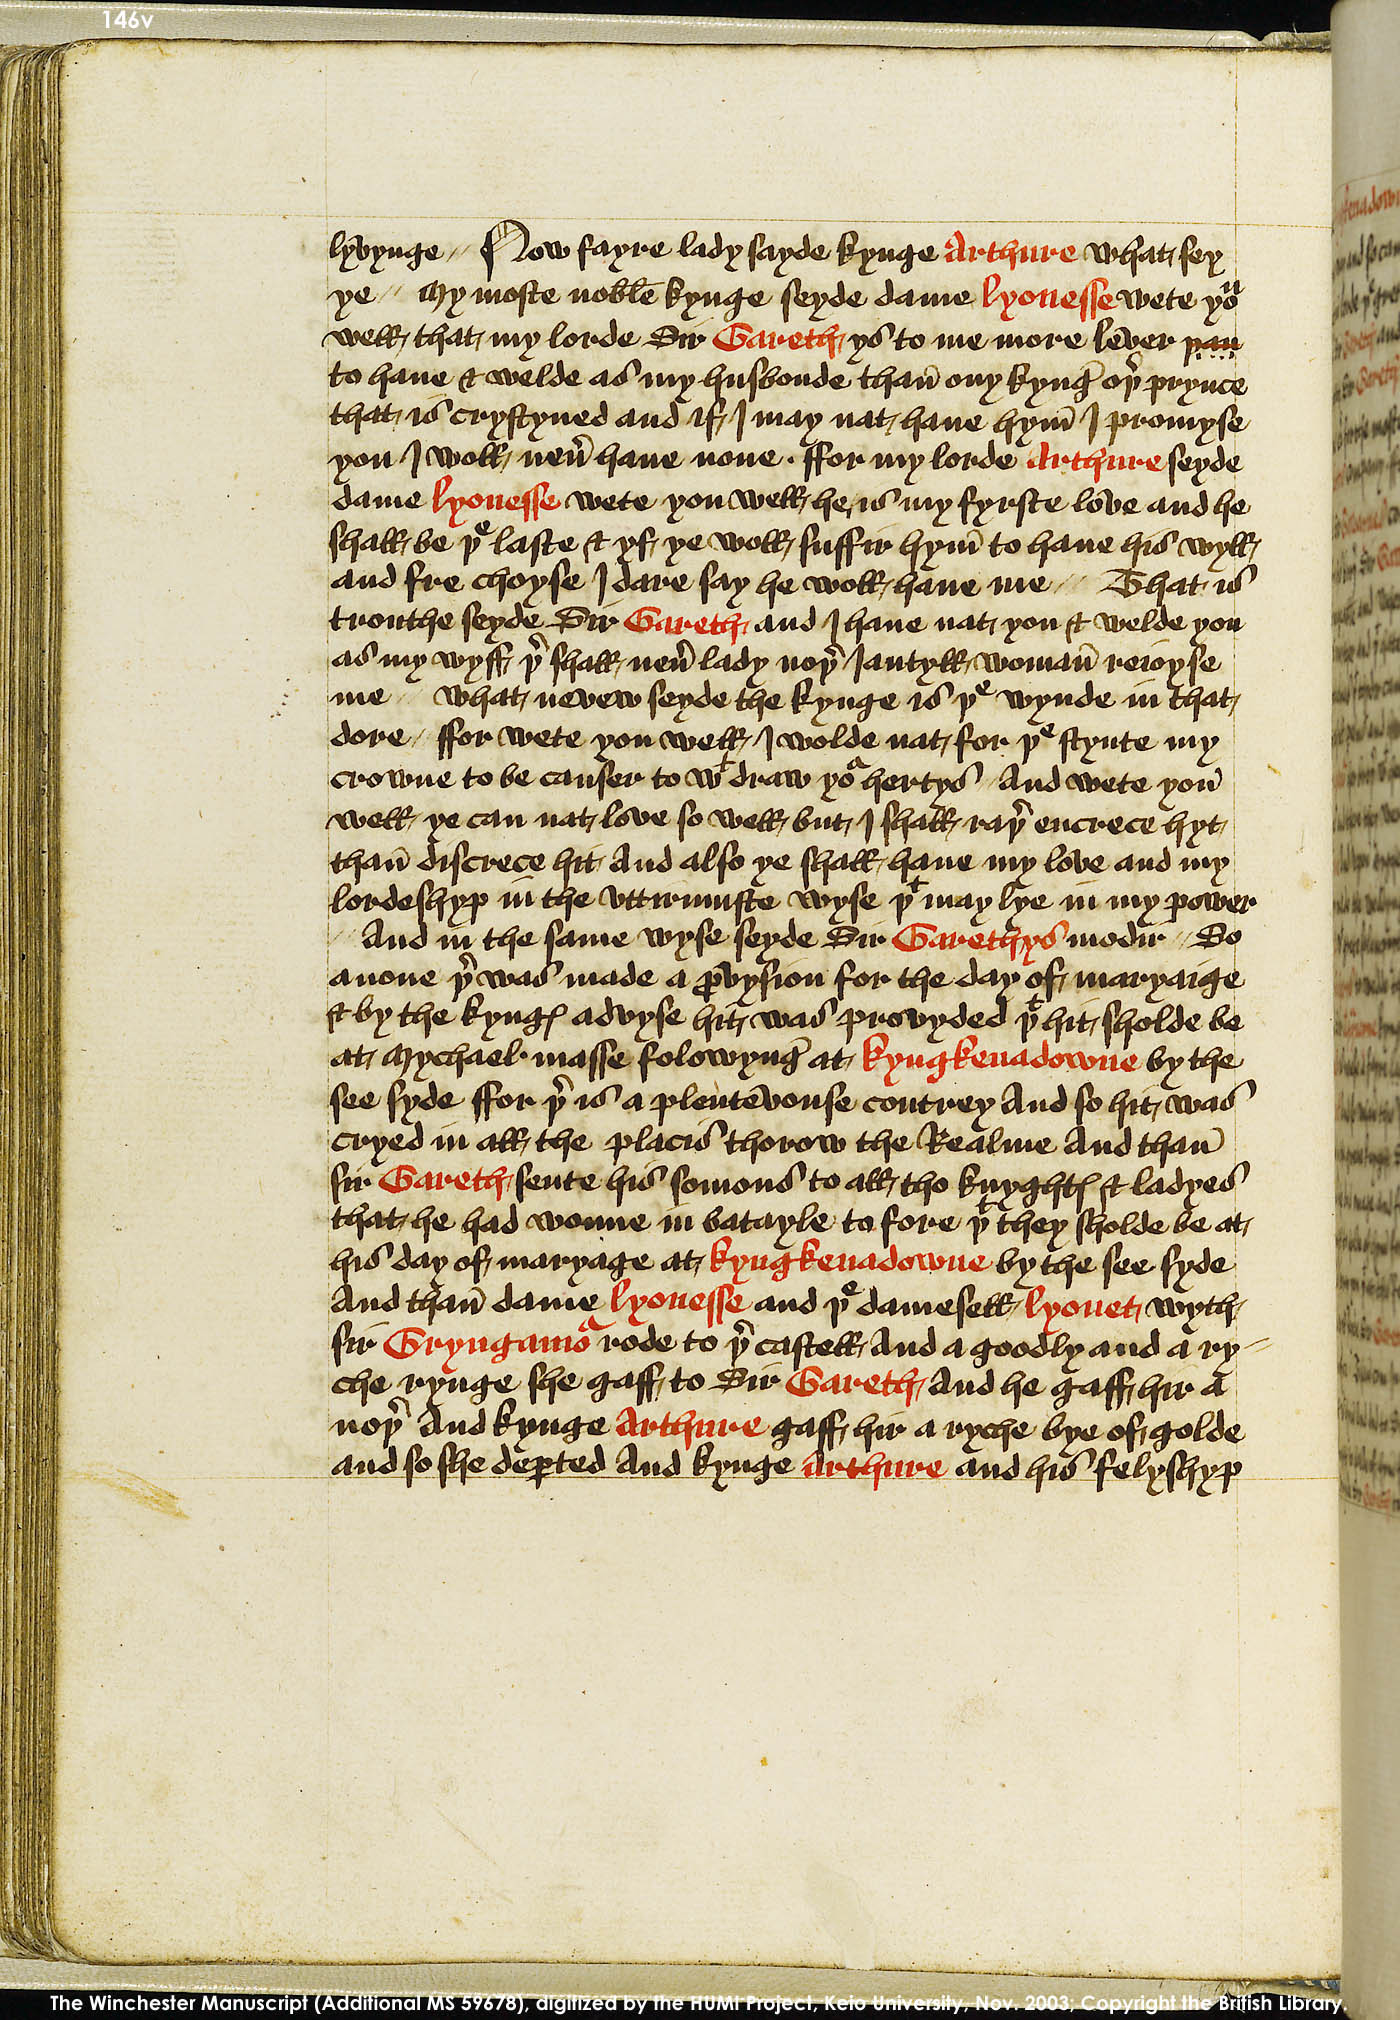 146v
lyvynge // Now fayre lady sayde kynge Arthure what sey
ye // My moste noble kynge seyde dame Lyonesse wete yoᵘ
well that my lorde Sir Gareth ys to me more lever þan
to haue & welde as my husbonde thañ ony kyngͤ oþͬ prynce
that is crystyned and if I may nat haue hym̄ I promyse
you I woll neũ haue none . ffor my lorde Arthure seyde
dame Lyonesse wete you well he is my fyrste love and he
shall be þᵉ laste & yf ye woll suffir hym̄ to haue his wyll
and fre choyse I dare say he woll haue me // That is
trouthe seyde Sir Gareth and I haue nat you & welde you
as my wyff þͬ shall neũ lady noþͬ Iantyll womañ reioyse
me // what nevew seyde the kynge is þᵉ wynde in that
dore // ffor wete you well I wolde nat for þᵉ stynte my
crowne to be causer to wᵗdraw yoᵃ hertys // And wete yoū
well ye can nat love so well but I shall raþͬ encrece hyt
thañ discrece hit And also ye shall haue my love and my
lordeshyp in the vttirmuste wyse þᵗ may lye in my power
// And in the same wyse seyde Sir Garethys modir // So
anone þͬ was made a ꝓvysion for the day of maryaige
& by the kyngꝭ advyse hit was provyded þᵗ hit sholde be
at Mychael masse folowyngͤ at kyngkenadowne by the
see syde ffor þͬ is a plentēvouse contrey And so hit was
cryed in all the placis thorow the Realme And thañ
sir Gareth sente his somons to all tho knyghtꝭ & ladyes
that he had wonne in batayle to fore þᵗ they sholde be at
his day of maryage at kyngkenadowne by the see syde
And thañ dame Lyonesse and þᵉ damesell Lyonet wyth
sir Gryngamoᵃ rode to þͬ castell And a goodly and a ry=
che rynge she gaff to Sir Gareth And he gaff hir a
noþͬ And kynge Arthure gaff hir a ryche bye of golde
and so she deꝑted And kynge Arthure and his felyshyp
The Winchester Manuscript (Additional MS 59678), digitized by the HUMI Project, Keio University, Nov. 2003; Copyright the British Library.